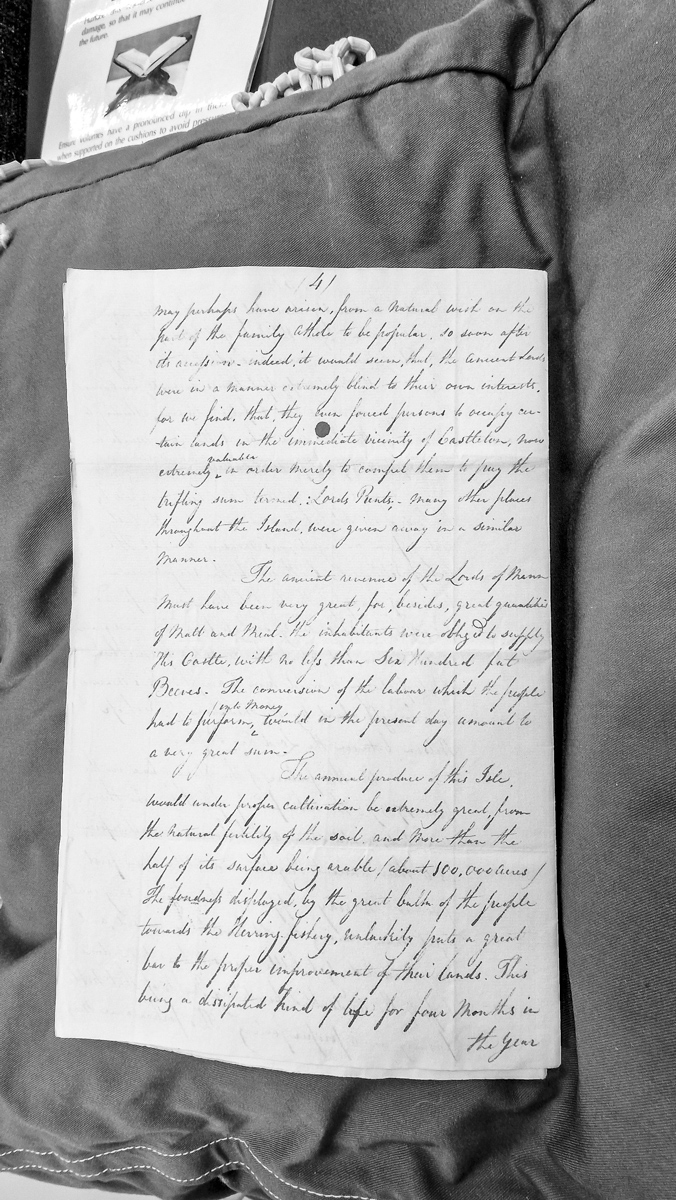 damage, so that it may continue
the future.
Ensure volumes have a pronounced dip in their
when supported on the cushions to avoid pressure
/4/
may perhaps have arisen, from a natural wish on the
part of the family Athole to be popular, so soon after
its accession - indeed, it would seem, that, the ancient Lords
were in a manner extremely blind to their own interests,
for we find, that, they even forced persons to occupy cer-
tain lands in the immediate vicinity of Castleton, now
extremely valuable in order merely to compel them to pay the
trifling sum termed: Lords Rents, - many other places
throughout the Island, were given away in a similar
manner.
The ancient revenue of the Lords of Mann
must have been very great, for, besides, great quantities
of Malt and Meal. the inhabitants were obliged to supply
His Castle, with no less than Six Hundred fat
Beeves. The conversion of the labour which the people
had to perform, into Money would in the present day amount to
a very great sum.-
The annual produce of this Isle,
would under proper cultivation be extremely great, from
the natural fertility of the soil, and more than the
half of its surface being arable /about 100,000 acres/
The fondness displayed, by the great bulk of the people
towards the Herring fishery, unluckily puts a great
bar to the proper improvement of their lands. This
being a dissipated kind of life for four Months in
the Year